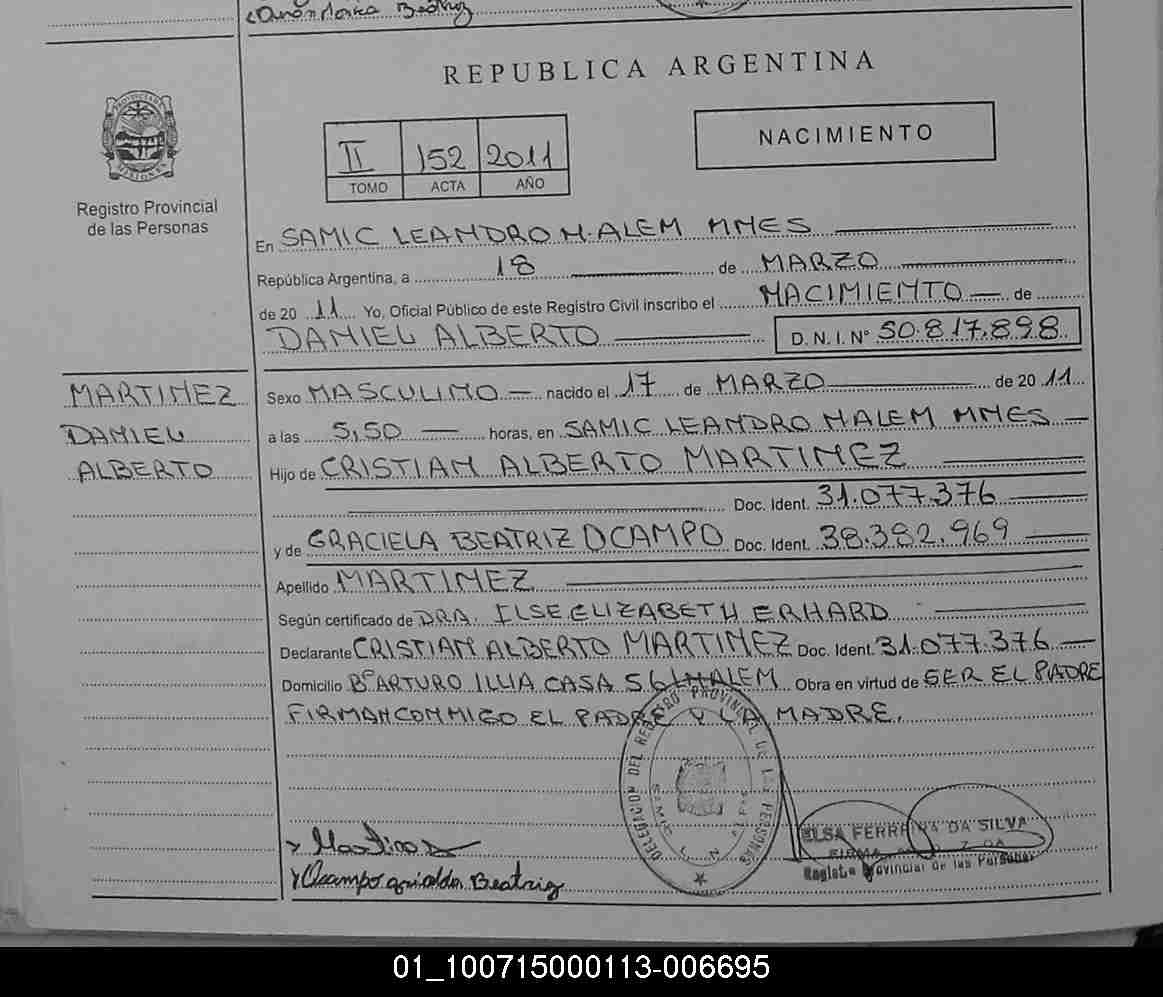 Beatriz
REPUBLICA ARGENTINA
II 152 2011
TOMO ACTA AÑO
NACIMIENTO
PROVINCIA DE MISIONES
Registro Provincial
de las Personas
En SAMIC LEANDRO N. ALEM MNES
República Argentina, a 18 de MARZO
de 20 11 Yo, Oficial Público de este Registro Civil inscribo el NACIMIENTO — de
DANIEL ALBERTO D. N. I. Nº 50.817.898
MARTINEZ
DANIEL
ALBERTO
Sexo MASCULINO — nacido el 17 de MARZO de 20 11
a las 5,50 — horas, en SAMIC LEANDRO N ALEM MNES
Hijo de CRISTIAN ALBERTO MARTINEZ
Doc. Ident. 31.077.376
y de GRACIELA BEATRIZ OCAMPO Doc. Ident. 38.382.969
Apellido MARTINEZ
Según certificado de DRA. ILSE ELIZABETH ERHARD
Declarante CRISTIAN ALBERTO MARTINEZ Doc. Ident. 31.077.376 —
Domicilio Bº ARTURO ILLIA CASA 56 N ALEM Obra en virtud de SER EL PADRE
FIRMAN CONMIGO EL PADRE Y LA MADRE.
DELEGACION DEL REGISTRO PROVINCIAL DE LAS PERSONAS
SAMIC L. N.
ELSA FERREIRA DA SILVA
FIRMA
Registro Provincial de las Personas
Martinez
Ocampo Beatriz
01_100715000113-006695